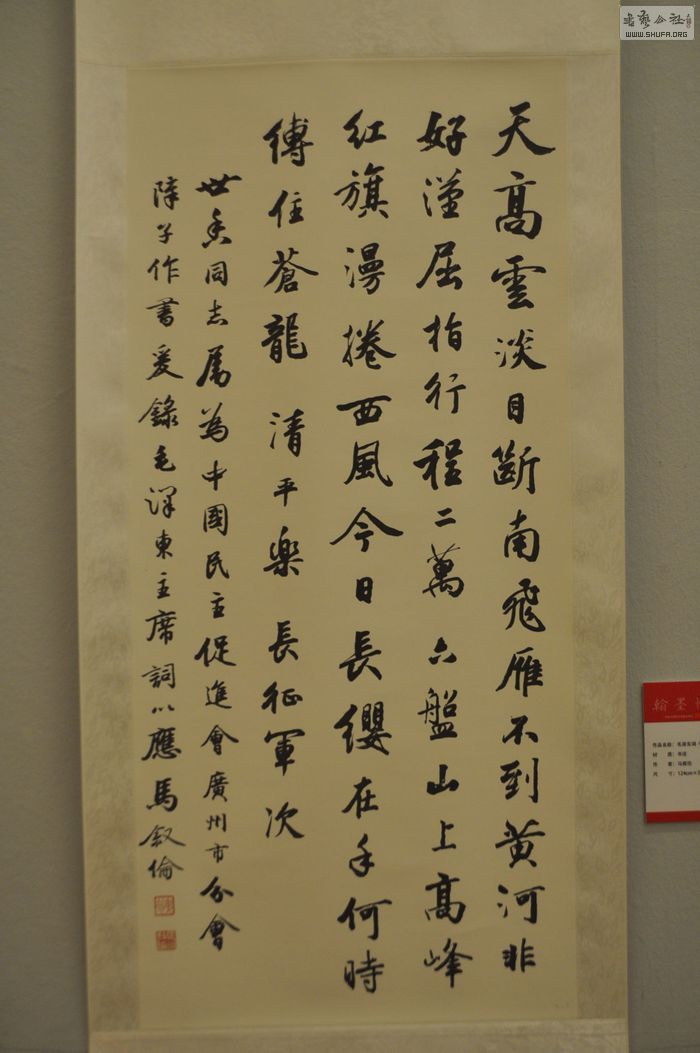 書藝公社
WWW.SHUFA.ORG
天高雲淡目斷南飛雁不到黄河非
好漢屈指行程二萬六盤山上高峰
紅旗漫捲西風今日長纓在手何時
縛住蒼龍 清平樂 長征軍次
世同志屬為中國民主促進會廣州市分會
障子作書爰錄毛澤東主席詞以應 馬叙倫
翰墨
作品名称:
材 质:
作 者:马叙伦
尺 寸:124cm×